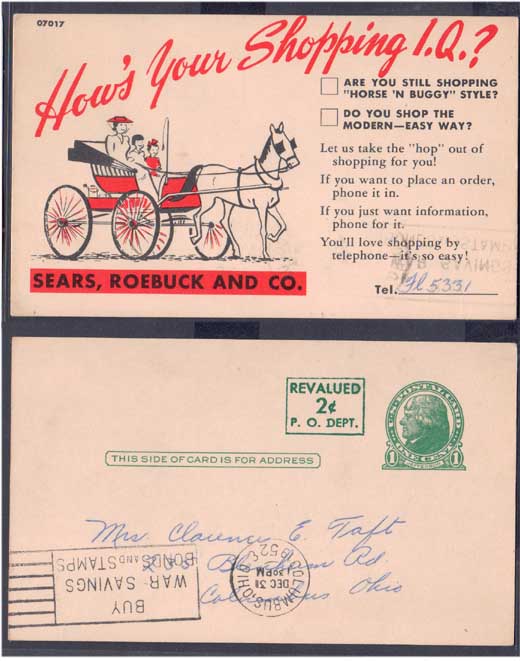 07017
How's Your Shopping I.Q.?
ARE YOU STILL SHOPPING
"HORSE 'N BUGGY" STYLE?
DO YOU SHOP THE
MODERN—EASY WAY?
Let us take the "hop" out of
shopping for you!
If you want to place an order,
phone it in.
If you just want information,
phone for it.
You'll love shopping by
telephone—it's so easy!
SEARS, ROEBUCK AND CO.
Tel. Fl 5331
REVALUED
2¢
P. O. DEPT.
U·S·POSTAL CARD
JEFFERSON
1 ONE CENT 1
THIS SIDE OF CARD IS FOR ADDRESS
Mrs. Clarence E. Taft
Rd.
Columbus Ohio
COLUMBUS, OHIO
DEC 31
1 30 PM
1952
BUY
WAR SAVINGS
BONDS AND STAMPS